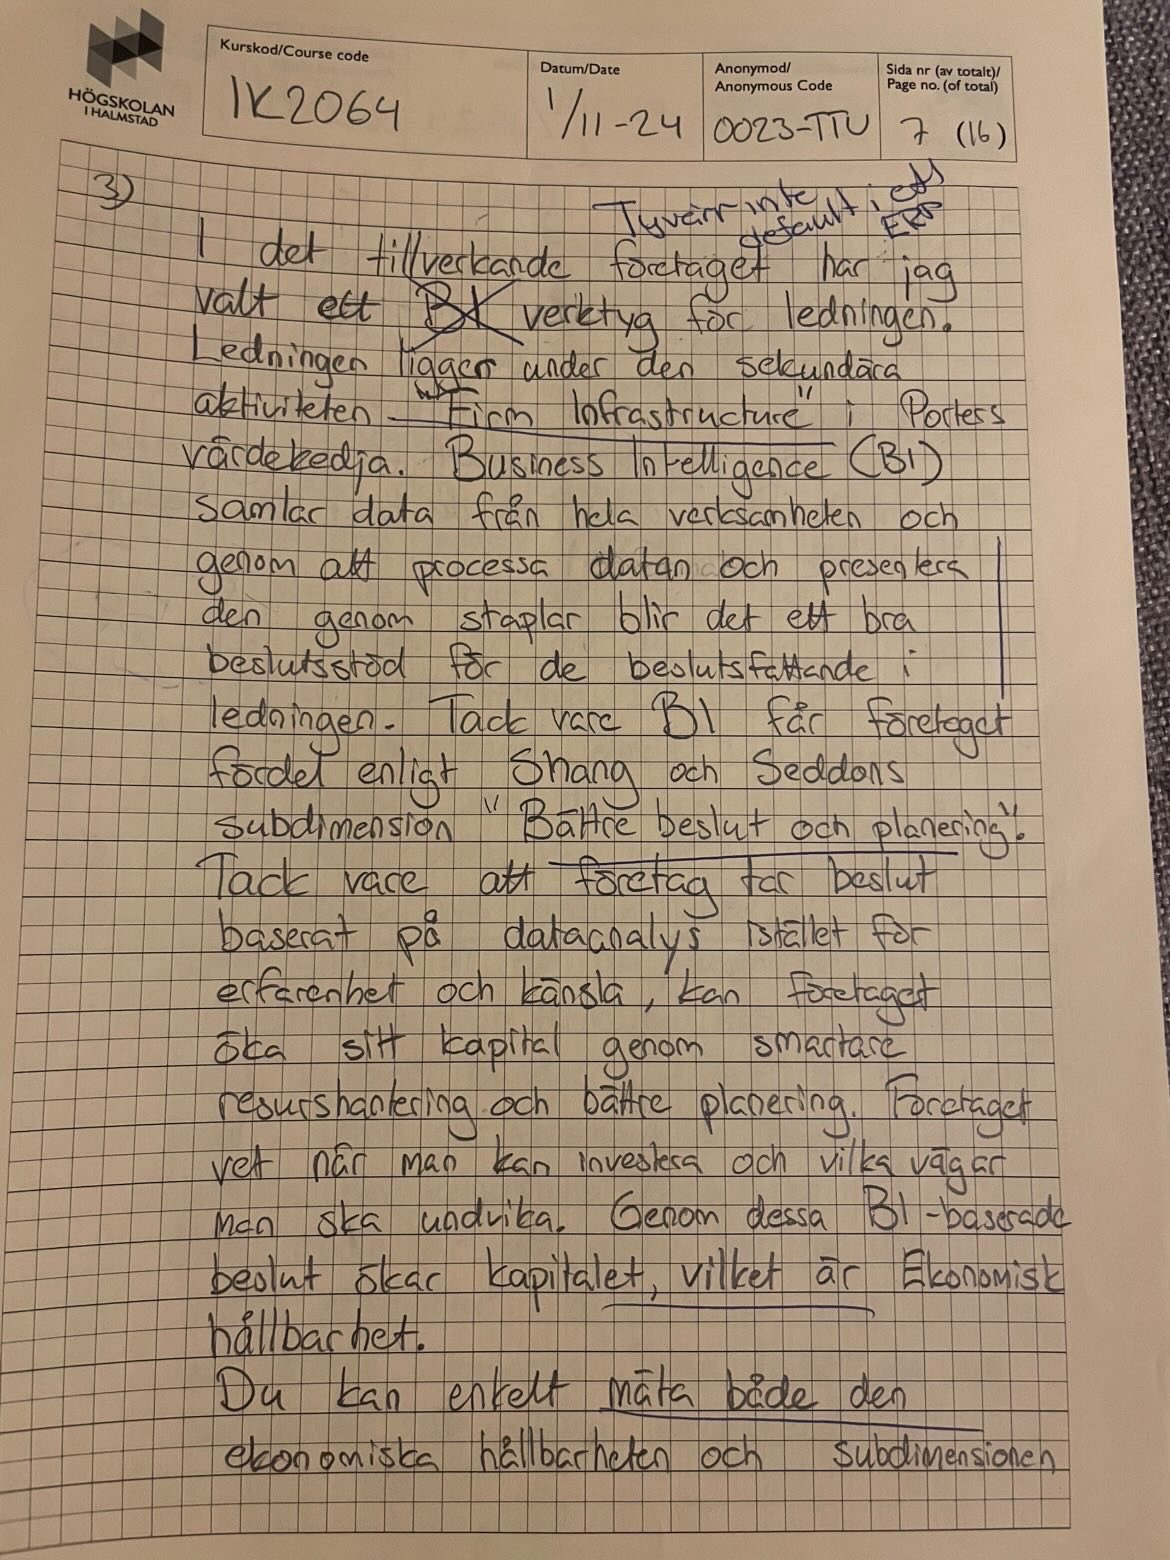 HÖGSKOLAN
I HALMSTAD
Kurskod/Course code
IK2064
Datum/Date
1/11-24
Anonymod/
Anonymous Code
0023-TTU
Sida nr (av totalt)/
Page no. (of total)
7 (16)
3)
Tyvärr inte
default i ett
ERP
I det tillverkande företaget har jag
valt ett BI verktyg för ledningen.
Ledningen ligger under den sekundära
aktiviteten "Firm Infrastructure" i Porters
värdekedja. Business Intelligence (BI)
samlar data från hela verksamheten och
genom att processa datan och presentera
den genom staplar blir det ett bra
beslutsstöd för de beslutsfattande i
ledningen. Tack vare BI får företaget
fördel enligt Shang och Seddons
subdimension "Bättre beslut och planering".
Tack vare att företag tar beslut
baserat på dataanalys istället för
erfarenhet och känsla, kan företaget
öka sitt kapital genom smartare
resurshantering och bättre planering. Företaget
vet när man kan investera och vilka vägar
man ska undvika. Genom dessa BI-baserade
beslut ökar kapitalet, vilket är Ekonomisk
hållbarhet.
Du kan enkelt mäta både den
ekonomiska hållbarheten och subdimensionen